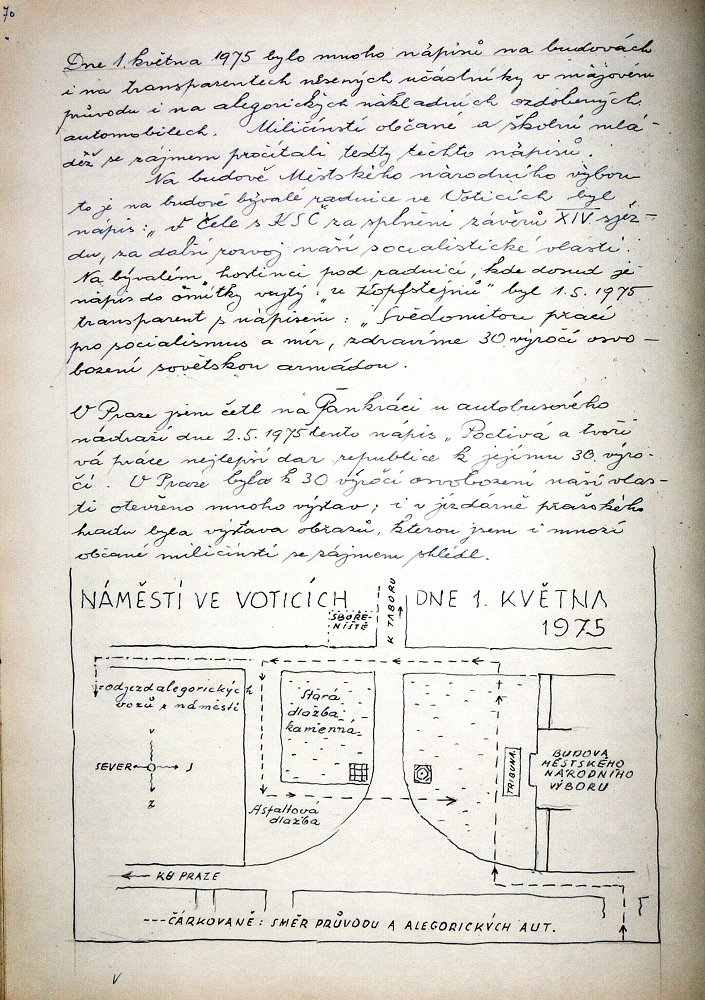 70
Dne 1. května 1975 bylo mnoho nápisů na budovách
i na transparentech nesených účastníky v májovém
průvodu i na alegorických nákladních ozdobených
automobilech. Miličínstí občané a školní mlá-
děž se zájmem pročítali texty těchto nápisů.
Na budově Městského národního výboru
to je na budově bývalé radnice ve Voticích byl
nápis: „V čele s KSČ za splnění závěrů XIV sjez-
du, za další rozvoj naší socialistické vlasti.
Na bývalém hostinci pod radnicí, kde dosud je
nápis do omítky vrytý: „u Kopfstejnů" byl 1.5.1975
transparent s nápisem: „Svědomitou prací
pro socialismus a mír, zdravíme 30 výročí osvo-
bození sovětskou armádou.
V Praze jsem četl na Pankráci u autobusového
nádraží dne 2.5.1975 tento nápis „Poctivá a tvoři
vá práce nejlepší dar republice k jejímu 30. výro-
čí. V Praze bylo k 30 výročí osvobození naší vlas-
ti otevřeno mnoho výstav; i v jízdárně pražského
hradu byla výstava obrazů, kterou jsem i mnozí
občané miličínstí se zájmem shlédl.
NÁMĚSTÍ VE VOTICÍCH DNE 1. KVĚTNA
1975
SBOŘE-
NIŠTĚ
K TÁBORU
odjezd alegorických
vozů z náměstí
Stará
dlažba
kamenná
V
SEVER J
Z
TRIBUNA
BUDOVA
MĚSTSKÉHO
NÁRODNÍHO
VÝBORU
Asfaltová
dlažba
KU PRAZE
---ČÁRKOVANĚ: SMĚR PRŮVODU A ALEGORICKÝCH AUT.
V